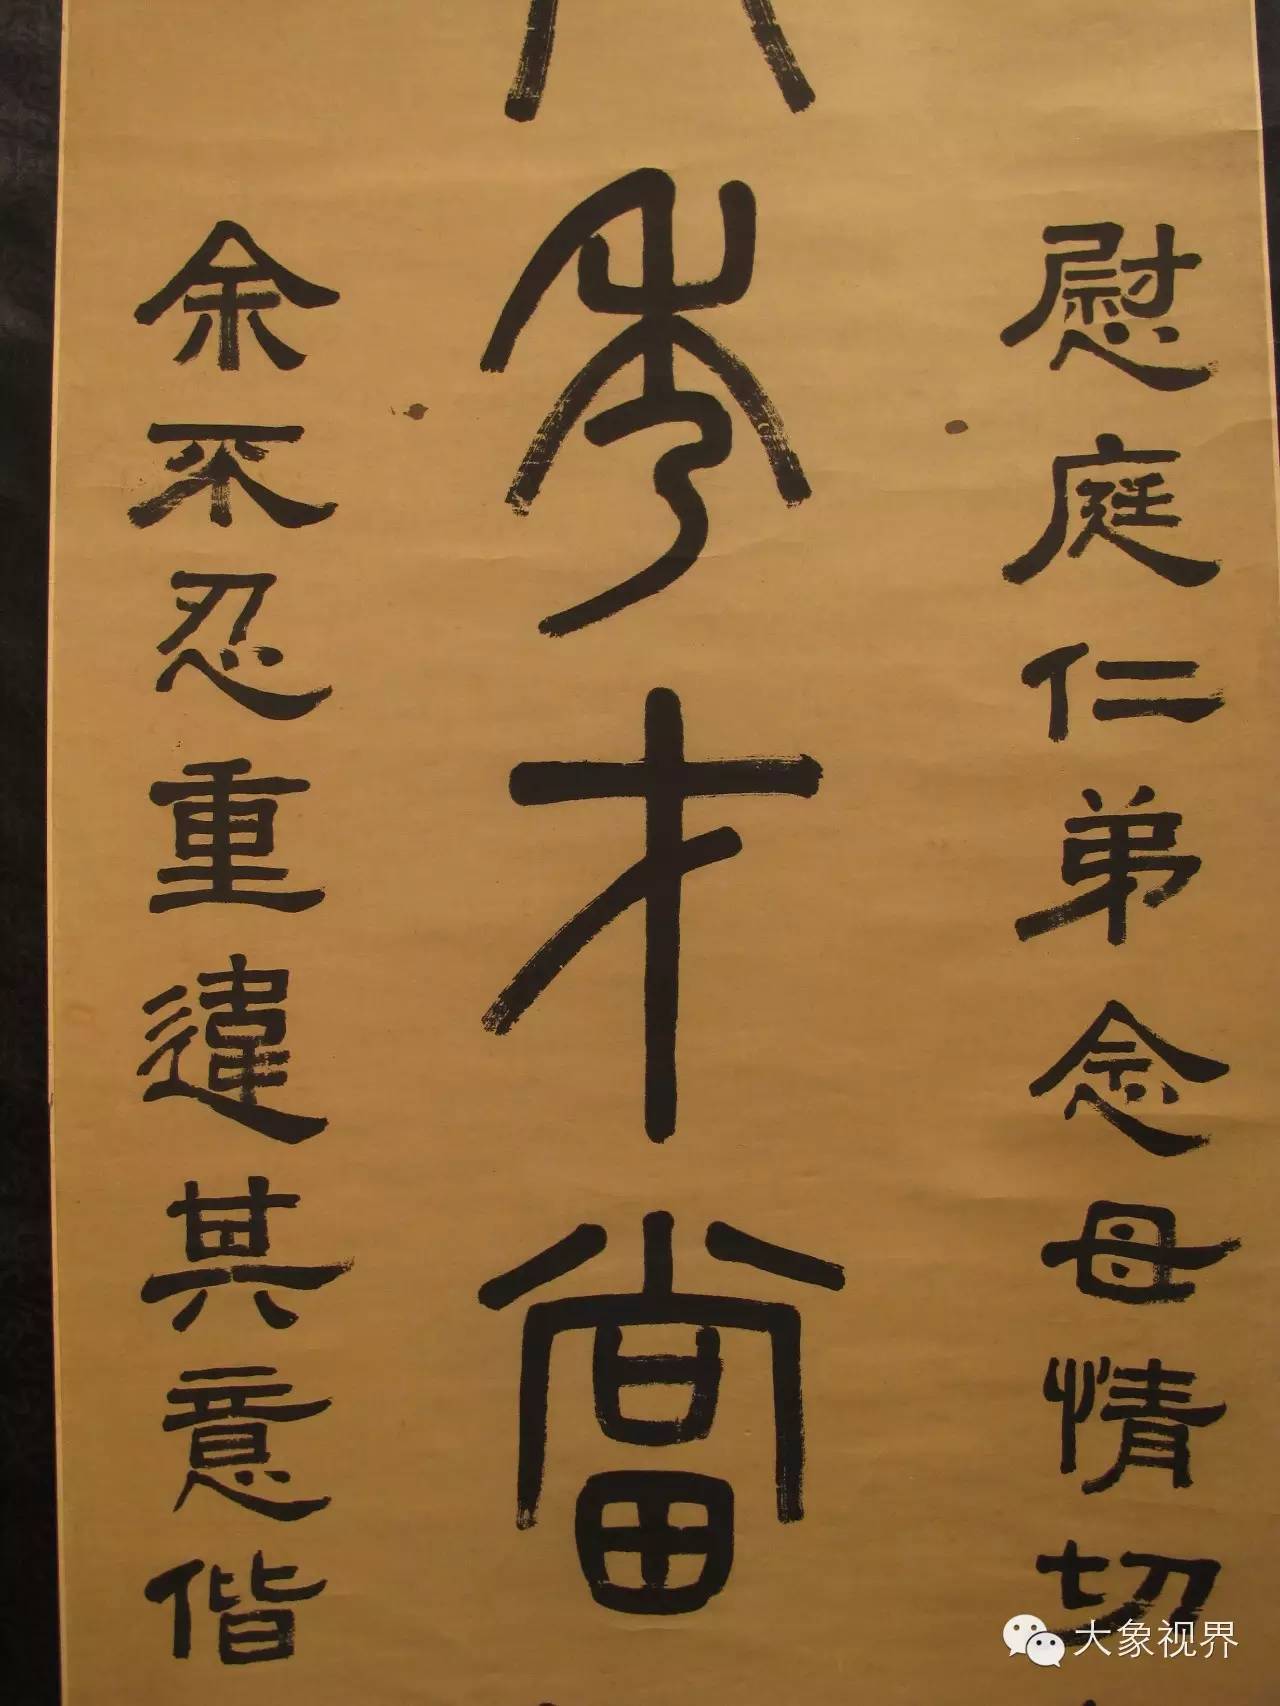 慰庭仁弟念母情切
秀才當
余不忍重違其意偕
大象视界